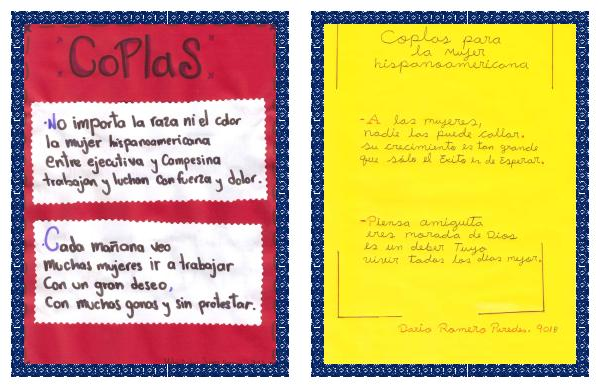 CoPlaS
·No importa la raza ni el color
la mujer hispanoamericana
entre ejecutiva y Campesina
trabajan y luchan Con fuerza y dolor.
Cada mañana veo
muchas mujeres ir a trabajar
Con un gran deseo,
Con muchas ganas y sin protestar.
Coplas para
la Mujer
hispanoamericana
-A las mujeres,
nadie las puede callar.
su crecimiento es tan grande
que sólo el Exito es de Esperar.
-Piensa amiguita
eres morada de Dios
es un deber Tuyo
vivir todos los dias mejor.
Darío Romero Paredes. 901B